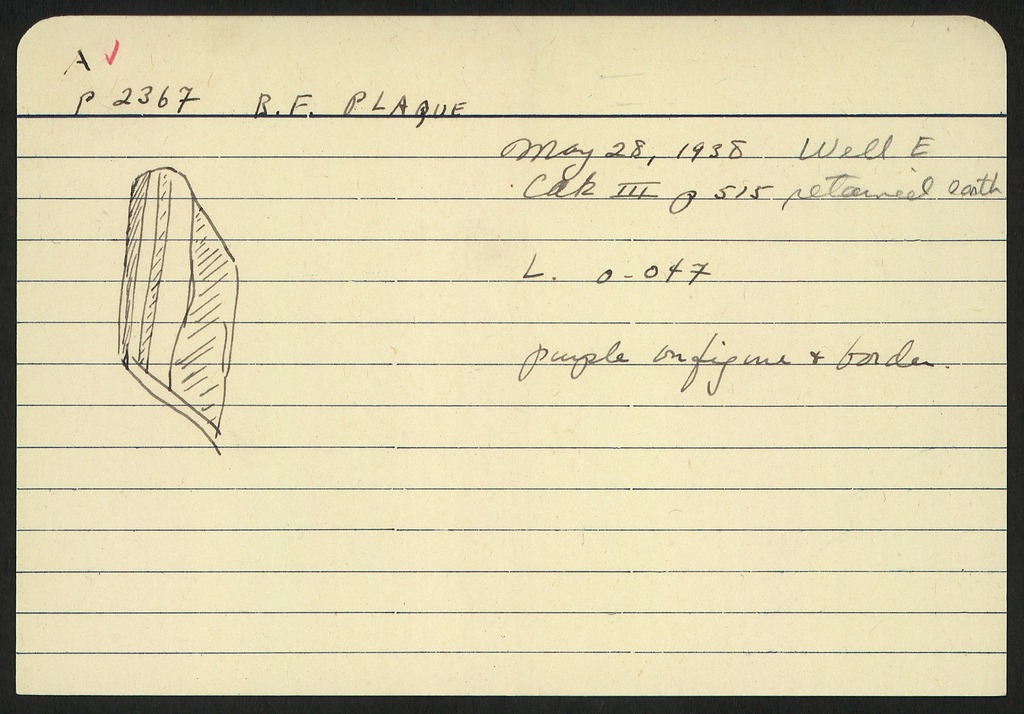 A ✓
P 2367 B.F. PLAQUE
May 28, 1938 Well E
III p 515 retained earth
L. 0-047
purple on figure + border.